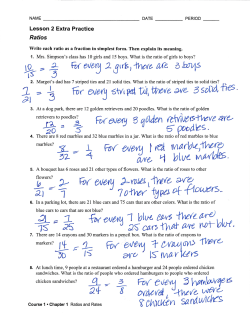 NAME DATE PERIOD
Lesson 2 Extra Practice
Ratios
Write each ratio as a fraction in simplest form. Then explain its meaning.
1. Mrs. Simpson's class has 10 girls and 15 boys. What is the ratio of girls to boys?
10/15 = 2/3 For every 2 girls, there are 3 boys
2. Margot's dad has 7 striped ties and 21 solid ties. What is the ratio of striped ties to solid ties?
7/21 = 1/3 For every striped tie, there are 3 solid ties.
3. At a dog park, there are 12 golden retrievers and 20 poodles. What is the ratio of golden
retrievers to poodles?
12/20 = 3/5 For every 3 golden retrievers there are
5 poodles.
4. There are 8 red marbles and 32 blue marbles in a jar. What is the ratio of red marbles to blue
marbles?
8/32 = 1/4 For every 1 red marble, there
are 4 blue marbles.
5. A bouquet has 6 roses and 21 other types of flowers. What is the ratio of roses to other
flowers?
6/21 = 2/7 For every 2 roses, there are
7 other types of flowers.
6. In a parking lot, there are 21 blue cars and 75 cars that are other colors. What is the ratio of
blue cars to cars that are not blue?
For every 7 blue cars there are
25 cars that are not blue.
7. There are 14 crayons and 30 markers in a pencil box. What is the ratio of crayons to
markers?
14/30 = 7/15 For every 7 crayons there
are 15 markers
8. At lunch time, 9 people at a restaurant ordered a hamburger and 24 people ordered chicken
sandwiches. What is the ratio of people who ordered hamburgers to people who ordered
chicken sandwiches?
9/24 = 3/8 For every 3 hamburgers
ordered, there were
8 chicken sandwiches
Course 1 • Chapter 1 Ratios and Rates